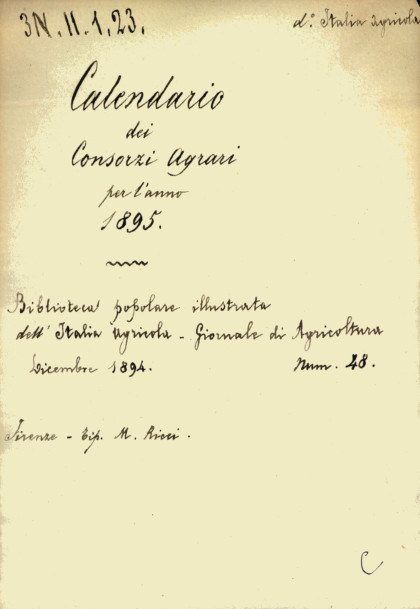 3N. 11. 1. 23.
d.° Italia agricola
Calendario
dei
Consorzi Agrari
per l'anno
1895.
Biblioteca popolare illustrata
dell' Italia agricola - Giornale di Agricoltura
Dicembre 1894. Num. 48.
Firenze - Tip. M. Ricci.
C